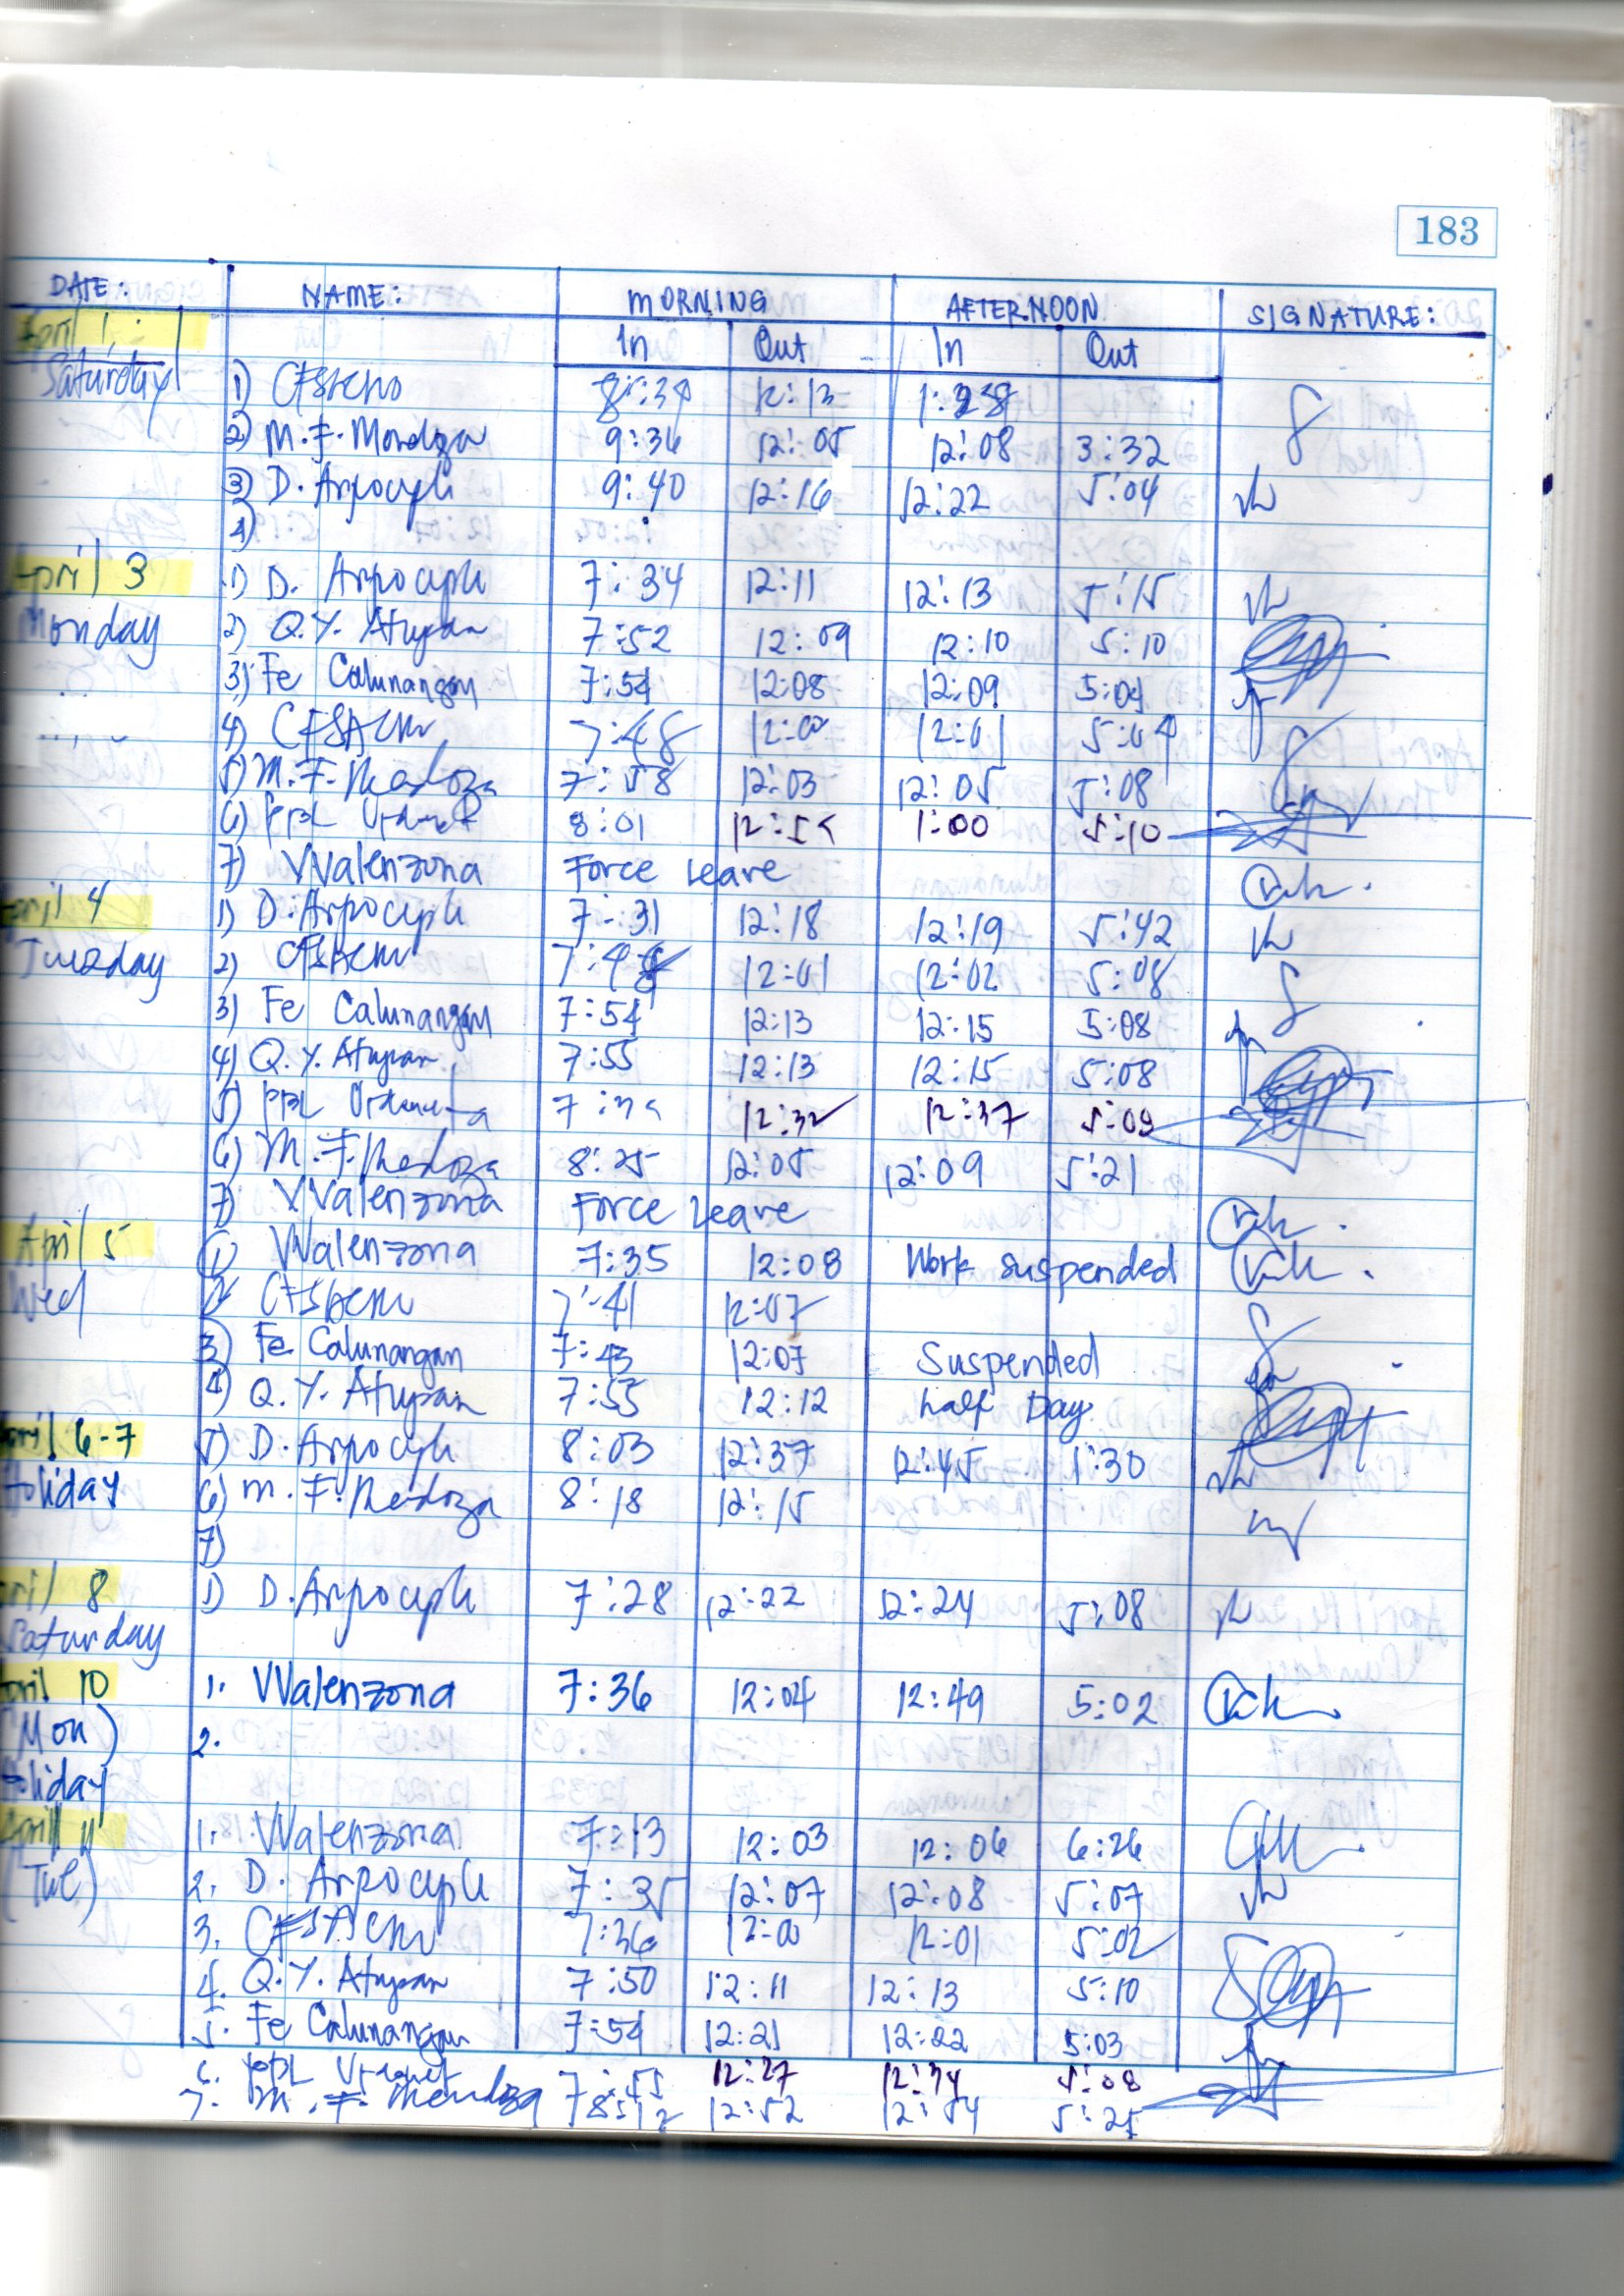 183
DATE: NAME: MORNING AFTERNOON SIGNATURE:
April 1, In Out In Out
Saturday 1) 12:13
2) M. F. Mendoza 9:36 12:05 12:08 3:32
3) D. Arpocyple 9:40 12:16 12:22 5:04
4)
April 3 1) D. Arpocyple 7:34 12:11 12:13 5:15
Monday 2) Q.Y. Atupan 7:52 12:09 12:10 5:10
3) Fe Calunangan 7:54 12:08 12:09 5:04
4) 7:48 12:00 12:01 5:04
5) M. F. Mendoza 7:58 12:03 12:05 5:08
6) PBL 8:01 1:00 5:10
7) VValenzona Force Leave
April 4 1) D. Arpocyple 7:31 12:18 12:19 5:42
Tuesday 2) 12:01 12:02 5:08
3) Fe Calunangan 7:54 12:13 12:15 5:08
4) Q.Y. Atupan 7:55 12:13 12:15 5:08
5) PBL 12:32 12:37 5:09
6) M. F. Mendoza 8:25 12:05 12:09 5:21
7) VValenzona Force Leave
April 5 1) VValenzona 7:35 12:08 Work suspended
Wed 2) 7:41 12:07
3) Fe Calunangan 7:43 12:07 Suspended
4) Q.Y. Atupan 7:55 12:12 half Day
April 6-7 5) D. Arpocyple 8:03 12:37 12:45 1:30
Holiday 6) M. F. Mendoza 8:18 12:15
7)
April 8 1) D. Arpocyple 7:28 12:22 12:24 5:08
Saturday
April 10 1. VValenzona 7:36 12:04 12:49 5:02
(Mon) 2.
Holiday
April 11 1. VValenzona 7:13 12:03 12:06 6:26
(Tue) 2. D. Arpocyple 7:35 12:07 12:08 5:07
3. 7:36 12:00 12:01 5:02
4. Q.Y. Atupan 7:50 12:11 12:13 5:10
5. Fe Calunangan 7:54 12:21 12:22 5:03
6. PBL 12:27 12:34 5:08
7. M. F. Mendoza 12:52 12:54 5:25